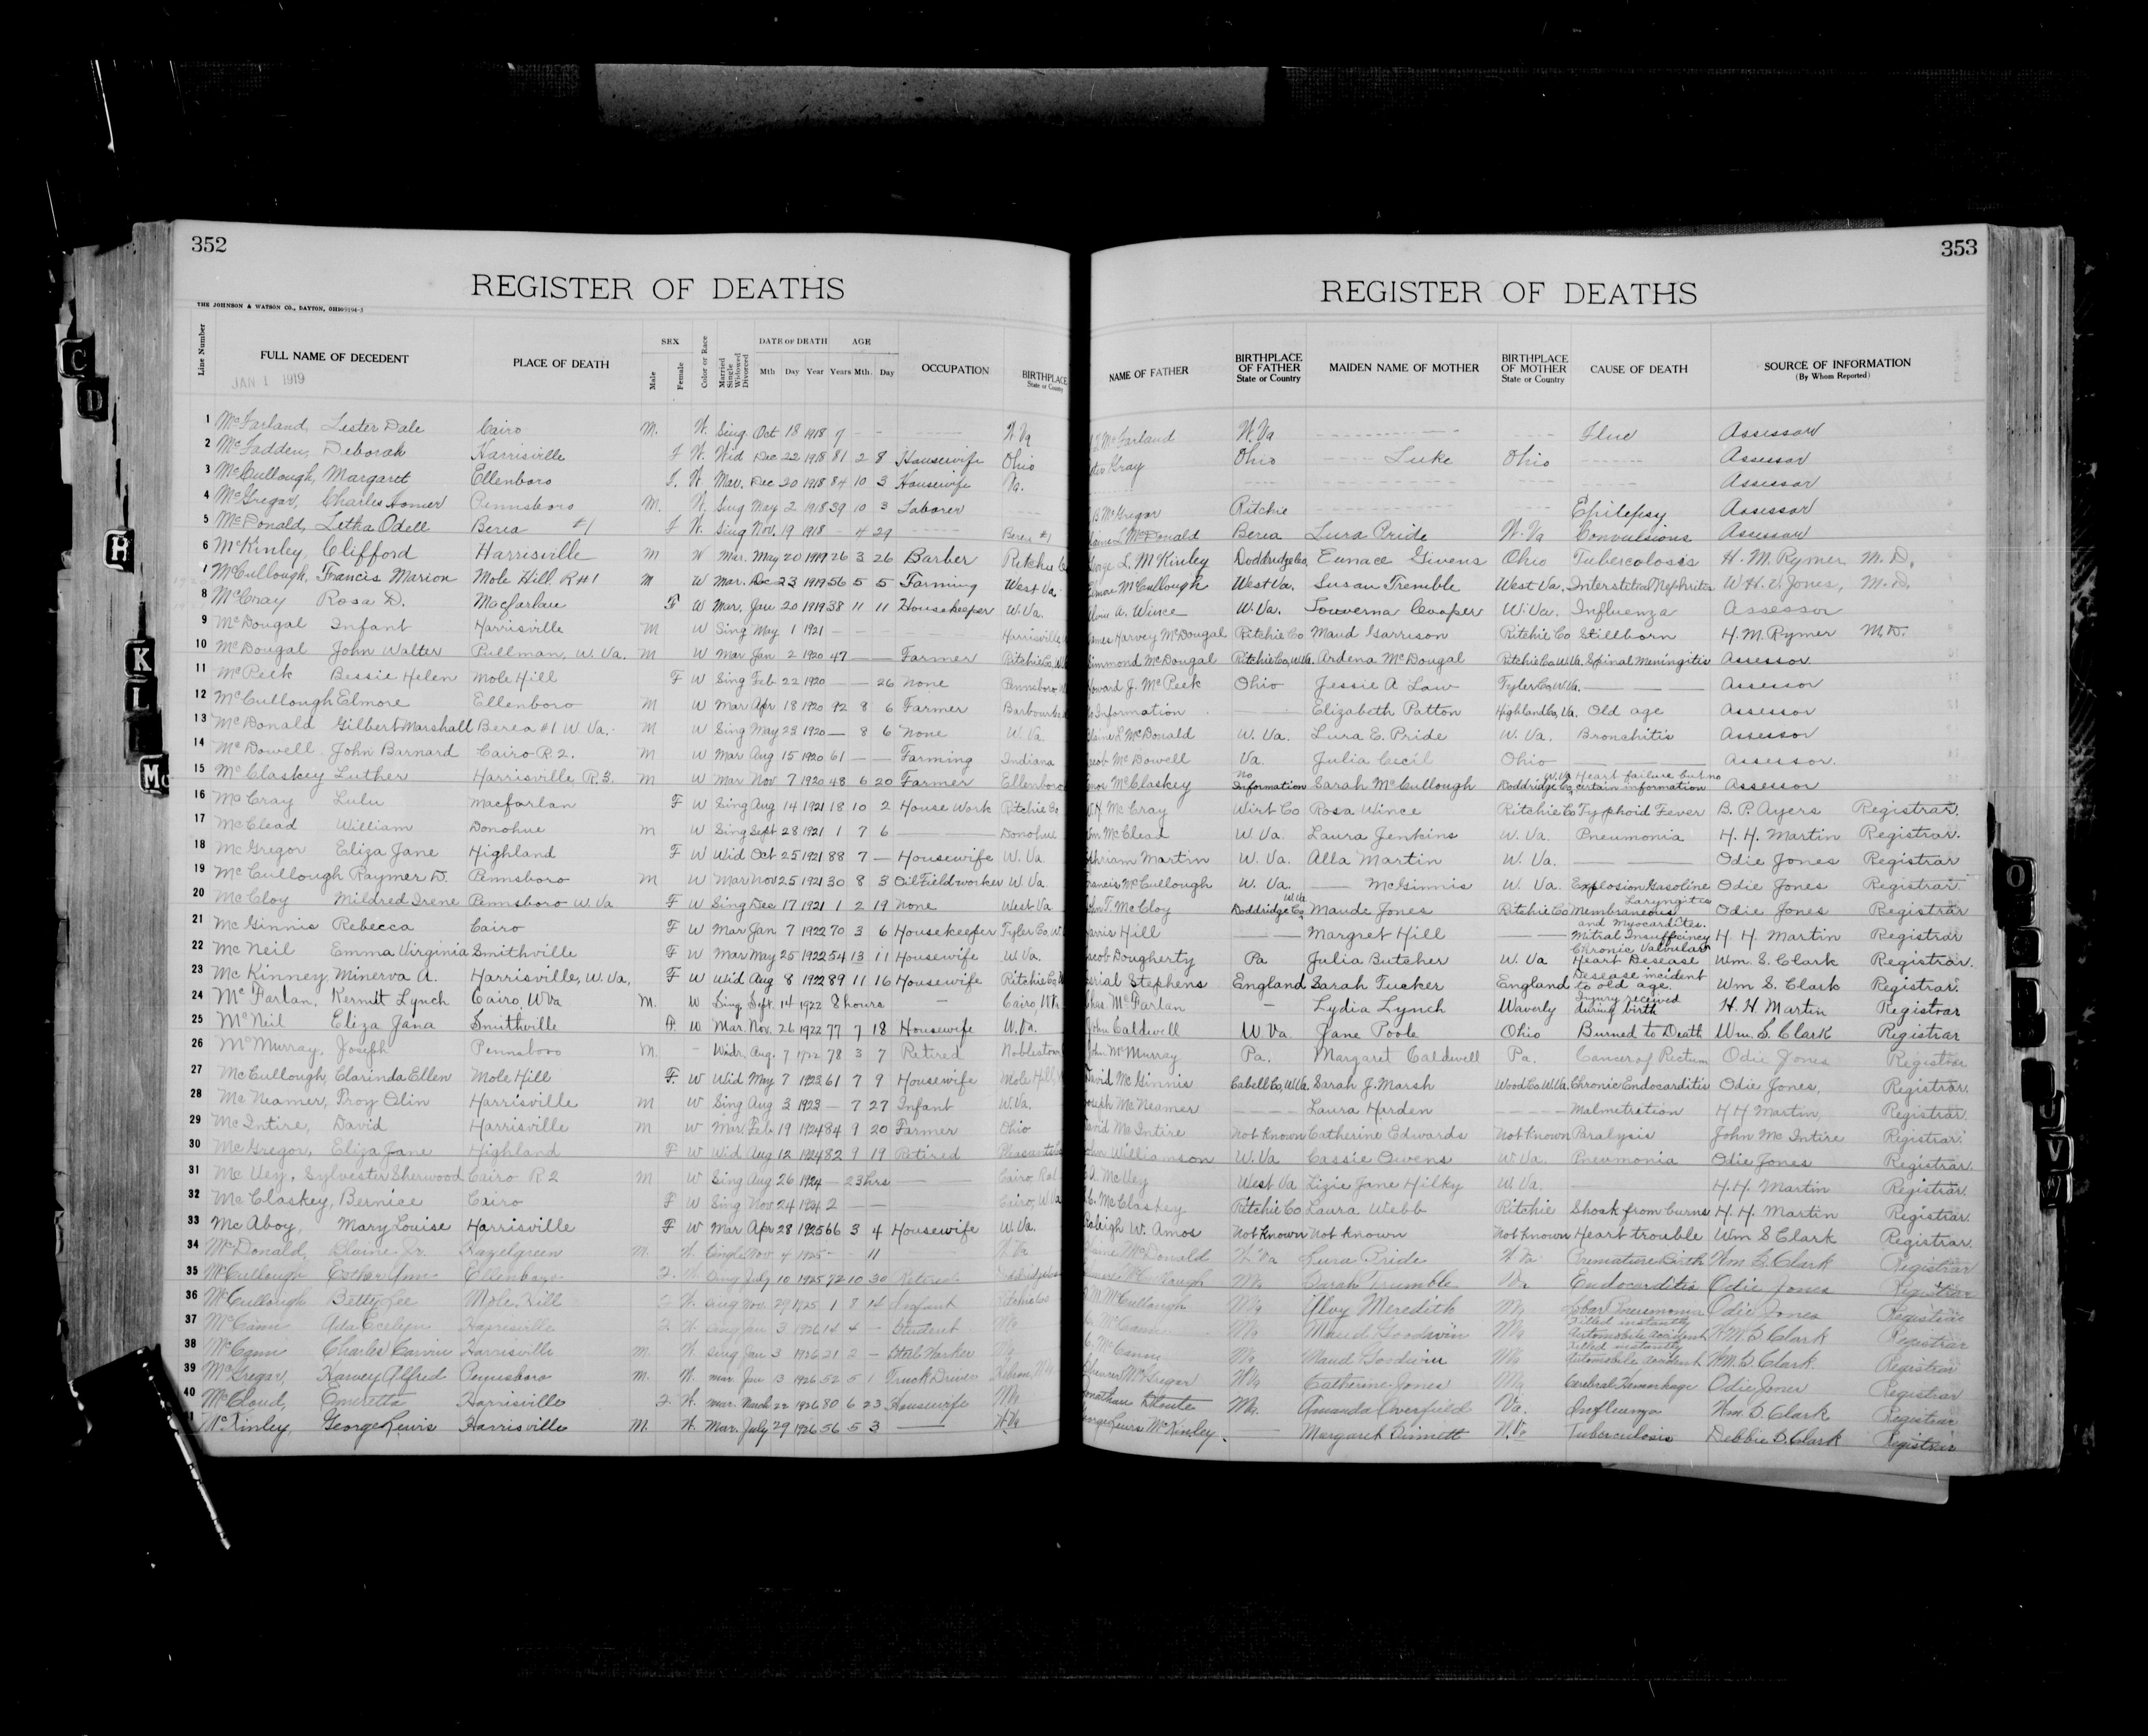 352
REGISTER OF DEATHS
THE JOHNSON & WATSON CO., DAYTON, OHIO
Line Number FULL NAME OF DECEDENT PLACE OF DEATH SEX Male Female Color or Race Married Single Widowed Divorced DATE OF DEATH Mth Day Year AGE Years Mth. Day OCCUPATION BIRTHPLACE State or Country
JAN 1 1919
1 McFarland, Lester Dale Cairo M. W. Sing Oct 18 1918 9 - - W Va
2 McFadden, Deborah Harrisville F W. Wid Dec 22 1918 81 2 8 Housewife Ohio
3 McCullough, Margaret Ellenboro F. W Mar. Dec 20 1918 84 10 3 Housewife Va.
4 McGregor, Charles Homer Pennsboro M. W. Sing May 2 1918 39 10 3 Laborer
5 McDonald, Letha Odell Berea #1 F W. Sing Nov. 19 1918 - 4 29 Berea #1
6 McKinley, Clifford Harrisville M W Mar. May 20 1919 26 3 26 Barber Ritchie
McCullough, Francis Marion Mole Hill R#1 M W Mar. Dec 23 1919 56 5 5 Farming West Va.
8 McCray Rosa D. Macfarlan F W Mar. Jan 20 1919 38 11 11 Housekeeper W. Va.
9 McDougal Infant Harrisville M W Sing May 1 1921 - Harrisville
10 McDougal John Walter Pullman, W. Va. M W Mar Jan 2 1920 47 - - Farmer Ritchie Co,
11 McPeek Bessie Helen Mole Hill F W Sing Feb 22 1920 - - 26 None Pennsboro
12 McCullough Elmore Ellenboro M W Mar Apr 18 1920 92 8 6 Farmer
13 McDonald Gilbert Marshall Berea #1 W. Va. M W Sing May 23 1920 - 8 6 None W. Va.
14 McDowell, John Barnard Cairo R 2. M W Mar Aug 15 1920 61 - - Farming Indiana
15 McClaskey Luther Harrisville, R.3. M W Mar Nov 7 1920 48 6 20 Farmer Ellenboro
16 McCray Lulu Macfarlan F W Sing Aug 14 1921 18 10 2 House Work Ritchie Co
17 McClead William Donohue M W Sing Sept 28 1921 1 7 6 Donohue
18 McGregor Eliza Jane Highland F W Wid Oct 25 1921 88 7 - Housewife W. Va
19 McCullough Raymer D. Pennsboro M W Mar Nov 25 1921 30 8 3 Oil Field worker W. Va
20 McCloy Mildred Irene Pennsboro W. Va F W Sing Dec 17 1921 1 2 19 None West Va
21 McGinnis Rebecca Cairo F W Mar Jan 7 1922 70 3 6 Housekeeper Tyler Co,
22 McNeil Emma Virginia Smithville F W Mar May 25 1922 54 13 11 Housewife W. Va.
23 McKinney Minerva A. Harrisville, W. Va, F W Wid Aug 8 1922 89 11 16 Housewife Ritchie Co
24 McFarlan, Kermit Lynch Cairo, W Va M. W Sing. Sept. 14 1922 8 hours - Cairo, W Va
25 McNeil Eliza Jana Smithville F. W Mar. Nov. 26 1922 77 7 18 Housewife W. Va.
26 McMurray, Joseph Pennsboro M. - Widr. Aug. 7 1922 78 3 7 Retired
27 McCullough, Clarinda Ellen Mole Hill F. W Wid May 7 1923 61 7 9 Housewife Mole Hill,
28 McNeamer, Troy Olin Harrisville M W Sing Aug 3 1923 - 7 27 Infant W. Va.
29 McIntire, David Harrisville M W Mar Feb 19 1924 84 9 20 Farmer Ohio
30 McGregor, Eliza Jane Highland F W Wid Aug 12 1924 82 9 19 Retired
31 McVey, Sylvester Sherwood Cairo R 2 M W Sing Aug 26 1924 - 23 hrs Cairo
32 McClaskey, Bernice Cairo F W Sing Nov 24 1924 2 - - Cairo, W Va
33 McAboy, Mary Louise Harrisville F W Mar Apr 28 1925 66 3 4 Housewife W. Va.
34 McDonald, Blaine Jr. Hazelgreen M. W. Single Nov 4 1925 - 11 W Va
35 McCullough Esther Ann Ellenboro F. W. Sing July 10 1925 72 10 30
36 McCullough Betty Lee Mole Hill F W. Sing Nov. 29 1925 1 8 14 Infant Ritchie Co
37 Ada Evelyn Harrisville F W. Sing Jan 3 1926 14 4 - Student W Va
38 Charles Harrisville M. W Sing Jan 3 1926 21 2 -
39 McGregor, Harvey Alfred Pennsboro M. W. mar. Jan 13 1926 52 5 1 Truck Driver
40 McCloud, Harrisville F W. mar. March 22 1926 80 6 23 Housewife W Va
McKinley, George Lewis Harrisville M. W. Mar. July 29 1926 56 5 3 W. Va
353
REGISTER OF DEATHS
NAME OF FATHER BIRTHPLACE OF FATHER State or Country MAIDEN NAME OF MOTHER BIRTHPLACE OF MOTHER State or Country CAUSE OF DEATH SOURCE OF INFORMATION (By Whom Reported)
McFarland W. Va Flue Assessor
Gray Ohio Luke Ohio Assessor
Assessor
B McGregor Ritchie Epilepsy Assessor
McDonald Berea Lura Pride W. Va Convulsions Assessor
L. McKinley Doddridge Co, Eunace Givens Ohio Tubercolosis H. M. Rymer M. D.
McCullough West Va. Susan Tremble West Va. Interstitial Nephritis W. H. Jones, M. D.
A. Wince W. Va. Louverna Cooper W. Va. Influenza Assessor
Harvey McDougal Ritchie Co Maud Garrison Ritchie Co Stillborn H. M. Rymer M. D.
McDougal Ritchie Co, W. Va. Ardena McDougal Ritchie Co W. Va. Spinal Meningitis Assessor.
J. McPeek Ohio Jessie A Law Tyler Co, W. Va. Assessor
Information Elizabeth Patton Highland Co, Va. Old age Assessor
McDonald W. Va. Lura E. Pride W. Va. Bronchitis Assessor
McDowell Va. Julia Cecil Ohio Assessor.
McClaskey No Information Sarah McCullough Doddridge Co, W. Va Heart failure but no certain information Assessor
McCray Wirt Co Rosa Wince Ritchie Co Typhoid Fever B. P. Ayers Registrar.
McClead W. Va. Laura Jenkins W. Va. Pneumonia H. H. Martin Registrar.
Martin W. Va. Alla Martin W. Va. Odie Jones Registrar
McCullough W. Va. McGinnis W. Va. Explosion Gasoline Odie Jones Registrar
McCloy Doddridge Co, W. Va Maude Jones Ritchie Co Membraneous Laryngitis Odie Jones Registrar
Hill Margret Hill and Myocardites. Mitral Insufficiency H. H. Martin Registrar
Dougherty Pa Julia Butcher W. Va Chronic Valvular Heart Desease Wm. S. Clark Registrar.
Stephens England Sarah Tucker England Desease incident to old age. Wm S. Clark Registrar.
McFarlan - Lydia Lynch Waverly Injury received during birth H. H. Martin Registrar
Caldwell W. Va. Jane Poole Ohio Burned to Death Wm. S. Clark Registrar
John McMurray Pa. Margaret Caldwell Pa. Cancer of Rectum Odie Jones Registrar
David McGinnis Cabell Co, W. Va. Sarah J. Marsh Wood Co. W. Va. Chronic Endocarditis Odie Jones, Registrar.
McNeamer Laura Harden Malnetration H H Martin, Registrar.
David McIntire Not Known Catherine Edwards Not Known Paralysis John McIntire Registrar.
Williamson W. Va Cassie Owens W. Va. Pneumonia Odie Jones Registrar.
McVey West Va Lizie Jane Hilky W. Va. H. H. Martin Registrar.
McClaskey Ritchie Co Laura Webb Ritchie Shoak from burns H. H. Martin Registrar.
Raleigh W. Amos Not Known Not Known Not Known Heart trouble Wm S Clark Registrar.
McDonald W Va Lura Pride W Va Premature Birth Wm S. Clark Registrar
McCullough W Va Sarah Trumble Endocarditis Odie Jones Registrar
McCullough W Va Alvy Meredith W Va Lobar Pneumonia Odie Jones Registrar
W Va Maud Goodwin W Va Killed instantly Automobile accident Wm. S. Clark Registrar
W Va Maud Goodwin W Va Killed instantly Automobile accident Wm. S. Clark. Registrar
McGregor W Va Catherine Jones W Va Cerebral Hemorrhage Odie Jones Registrar
W Va. Amanda Overfield Va. Influenza Wm. S. Clark Registrar
McKinley. Margaret Sinnett W. Va Tuberculosis Debbie S. Clark Registrar
C
D
H
K
L
Mc
O
U
V